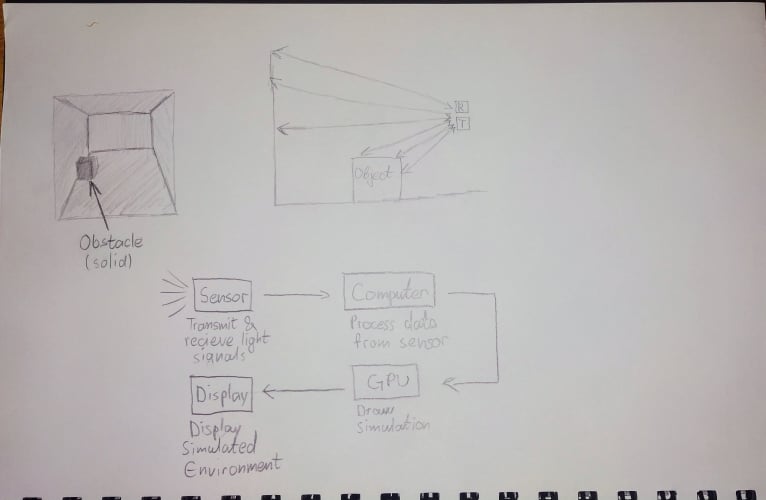 R
T
Object
Obstacle
(solid)
Sensor
Transmit &
recieve light
signals
Computer
Process data
from sensor
GPU
Draw
Simulation
Display
Display
Simulated
Environment